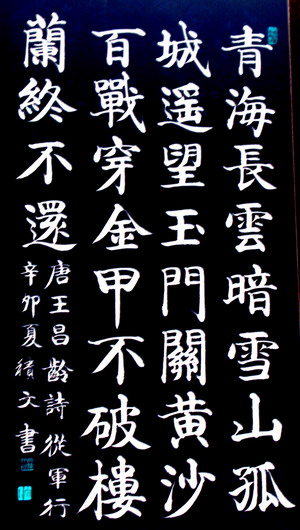 青海長雲暗雪山孤
城遥望玉門關黄沙
百戰穿金甲不破樓
蘭終不還
唐王昌齡詩從軍行
辛卯夏積文書